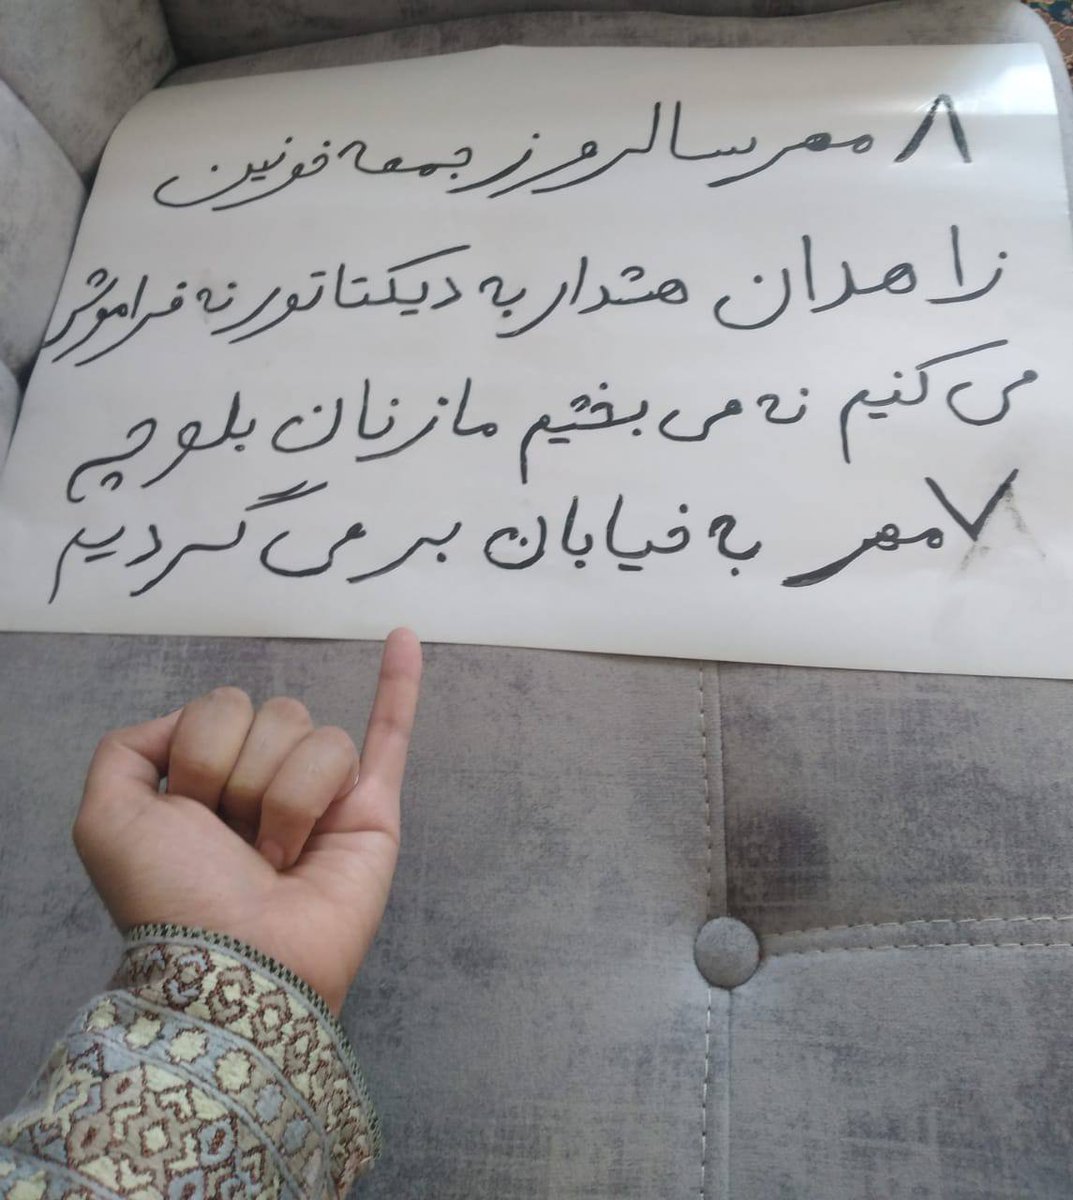 ۸ مهر سالروز جمعه خونین
زاهدان هشدار به دیکتاتور نه فراموش
می کنیم نه می بخشیم ما زنان بلوچ
۷ مهر به خیابان بر می گردیم